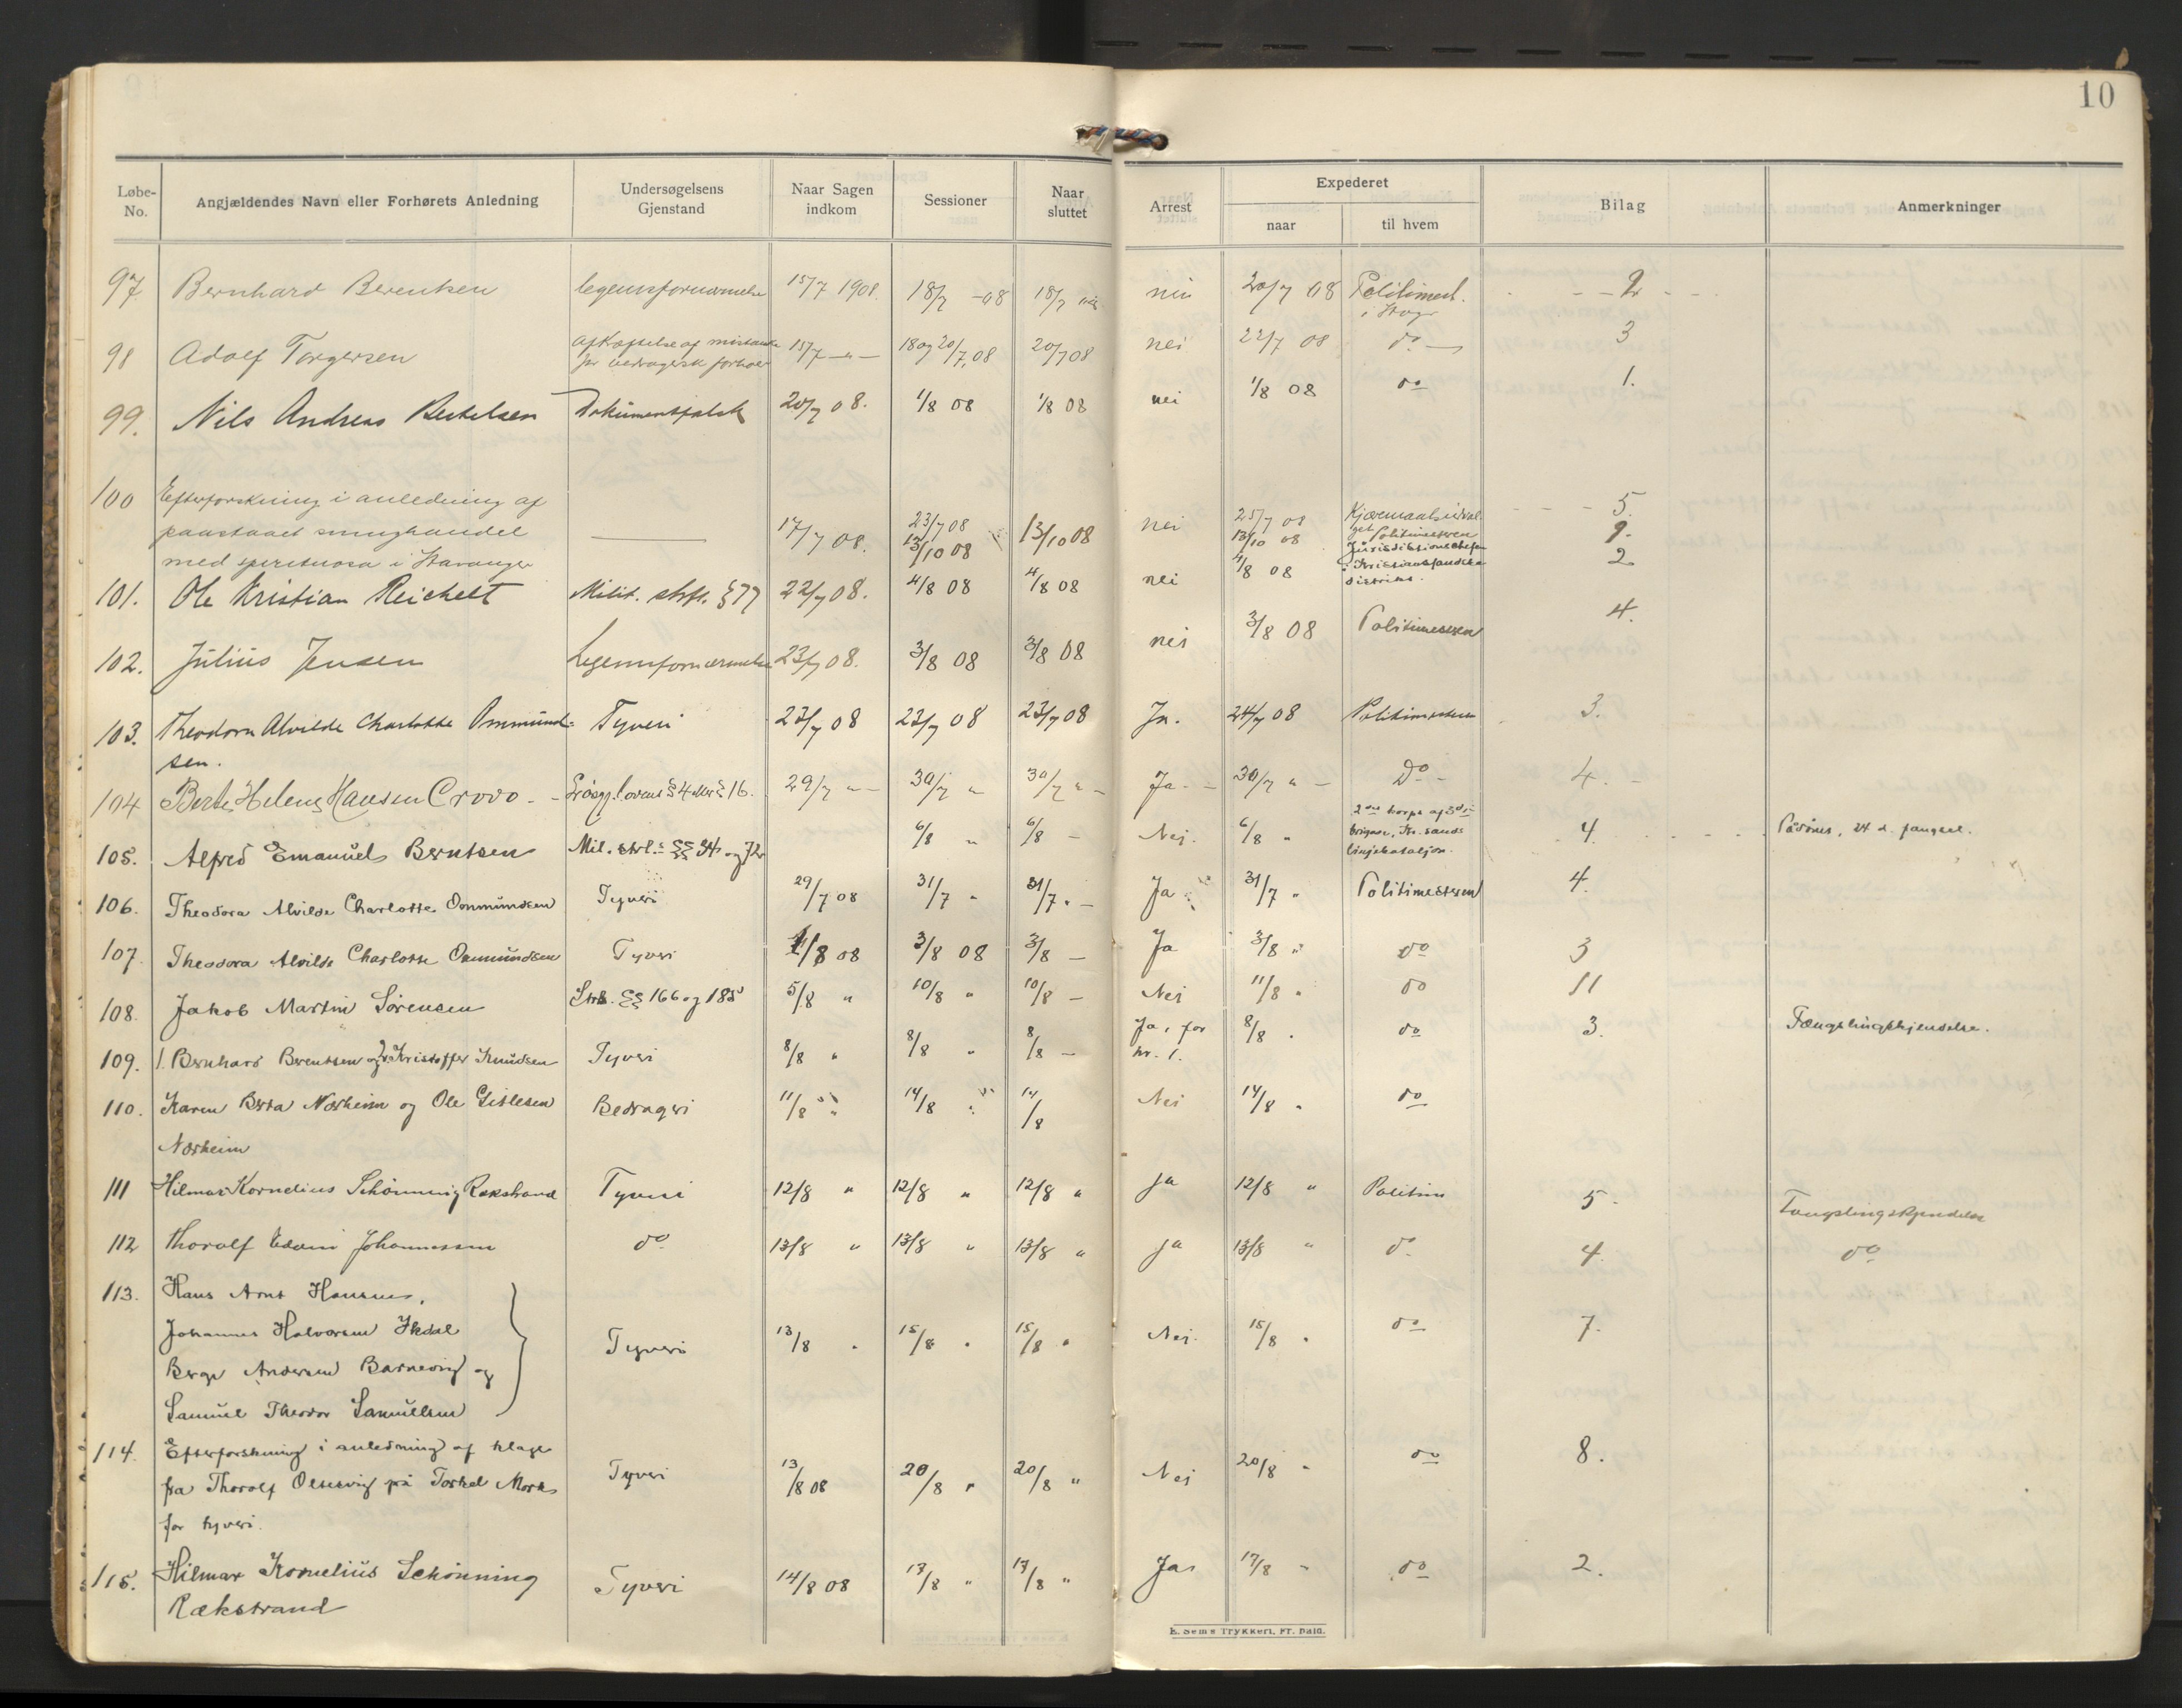 10
Løbe-No. Angjældendes Navn eller Forhørets Anledning Undersøgelsens Gjenstand Naar Sagen indkom Sessioner Naar sluttet Arrest Expederet naar til hvem Bilag Anmerkninger
97 Bernhard Berentsen legemsfornærmelse 15/7 1908. 18/7 -08 18/7 nei 20/7 08 Politimest. 2
i Stavgr
98 Adolf Torgersen afkræftelse af mistanke 15/7 — " — 18 og 20/7 08 20/7 08 nei 22/7 08 do — 3
for bedragersk forhold
99. Nils Andreas Bertelsen Dokumentfalsk 20/7 08. 1/8 08 1/8 08 nei 1/8 08 do 1.
100 Efterforskning i anledning af
paastaaet smughandel 17/7 08. 23/7 08 13/10 08 nei 25/7 08 Kjæremaalsudval- 5.
med spirituosa i Stavanger 13/10 08 13/10 08 get Politimesteren 9.
101. Ole Kristian Reichelt Milit. strfl. § 77 22/7 08. 4/8 08 4/8 08 nei 4/8 08 Jurisdiktionschefen 2
i Kristianssandske
distrikt.
102. Julius Jensen Legemsfornærmelse 23/7 08. 3/8 08 3/8 08 nei 3/8 08 Politimesteren 4.
103. Theodora Alvilde Charlotte Ommund- Tyveri 23/7 08 23/7 08 23/7 08 Ja. 24/7 08 Politimesteren 3.
sen.
104 Berte Helene Hansen Crovo - Løsgj. lovens § 4 jfr § 16. 29/7 " — 30/7 " 30/7 " — Ja - 30/7 " — Do - 4. -
105. Alfred Emanuel Berntsen Mil. strl. §§ 34 og 72 6/8 " 6/8 - Nej. 6/8 " 2det korps af 3die 4. Pådømt, 24 d. fængsel.
brigade, Kr.sands
linjebataljon.
106. Theodora Alvilde Charlotte Ommundsen Tyveri 29/7 08 31/7 " 31/7 " — Ja 31/7 " Politimesteren 4.
107. Theodora Alvilde Charlotte Ommundsen Tyveri 1/8 08 3/8 08 3/8 — Ja 3/8 " do 3
108. Jakob Martin Sørensen Strl. §§ 166 og 185 5/8 " 10/8 " 10/8 — Nei 11/8 " do 11
109. 1. Bernhard Berentsen og 2. Kristoffer Knudsen Tyveri 8/8 " 8/8 " 8/8 — Ja, for 8/8 " do 3. Fængslingskjendelse.
nr. 1.
110. Karen Berta Nærheim og Ole Gislesen Bedrageri 11/8 " 14/8 " 14/8 Nei 14/8 " do
Nærheim
111 Hilmar Kornelius Schønning Rækstrand Tyveri 12/8 " 12/8 " 12/8 " ja 12/8 " Politim 5. Fængslingskjendelse
112 Thorolf Edvin Johannessen do 13/8 " 13/8 " 13/8 " ja 13/8 " do 4. do
113. Hans Arnt Hansen,
Johannes Halvorsen Ikdal
Berge Andersen Barnevig og Tyveri 13/8 " 15/8 " 15/8 " Nei. 15/8 " do 7.
Samuel Theodor Samuelsen
114. Efterforskning i anledning af klage
fra Thorolf Olsesvig på Torkel Mork Tyveri 13/8 08 20/8 " 20/8 " Nei 20/8 " do 8.
for tyveri.
115. Hilmar Kornelius Schønning Tyveri 14/8 08 17/8 " 17/8 " Ja 17/8 " do 2.
Rækstrand
E. Sem's Trykkeri, Fr.hald.